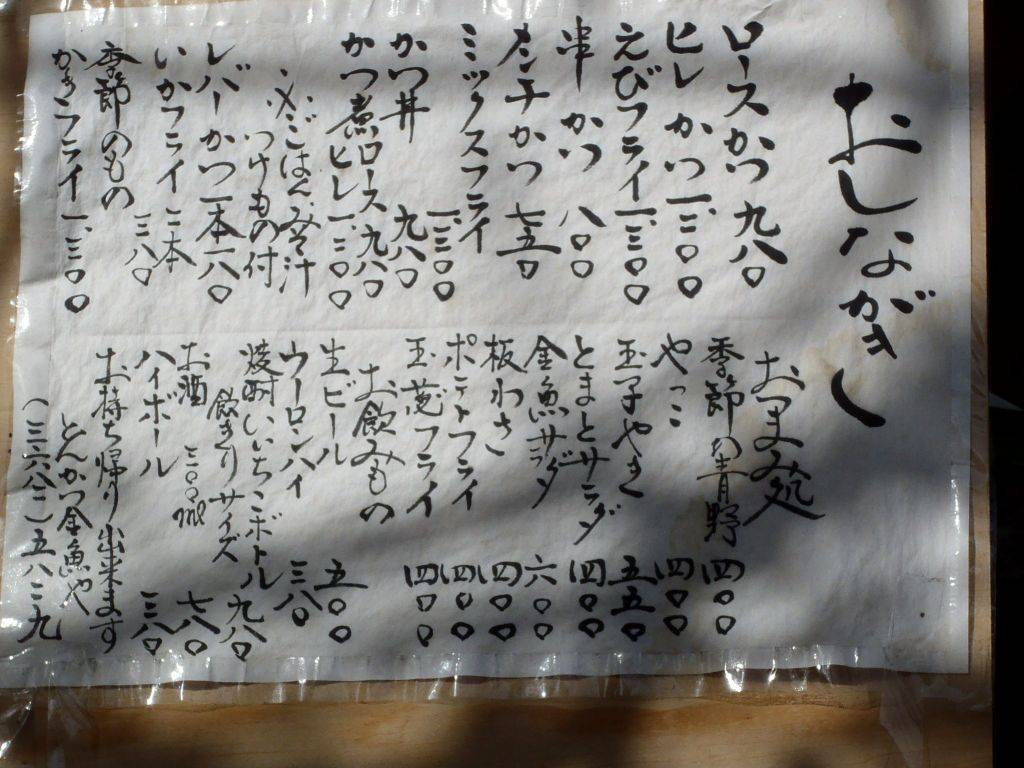 おしながき
ロースかつ 九八〇
ヒレかつ 一、三〇〇
えびフライ 一、三〇〇
串かつ 八〇〇
メンチかつ 七五〇
ミックスフライ 一、三〇〇
かつ丼 九八〇
かつ煮 ロース 九八〇
ヒレ 一、三〇〇
※ごはん、みそ汁
つけもの付
レバーかつ 一本 一八〇
いかフライ 二本 三八〇
季節のもの
かきフライ 一、三〇〇
おつまみ処
季節の青野 四〇〇
やっこ 四〇〇
玉子やき 五五〇
とまとサラダ 四〇〇
金魚サラダ 六〇〇
板わさ 四〇〇
ポテトフライ 四〇〇
玉葱フライ 四〇〇
お飲みもの
生ビール 五〇〇
ウーロンハイ 三八〇
焼酎いいちこボトル 九八〇
飲きりサイズ
お酒 三〇〇ml 七八〇
ハイボール 三八〇
お持ち帰り出来ます
とんかつ金魚や
(三三六八二)五八二九